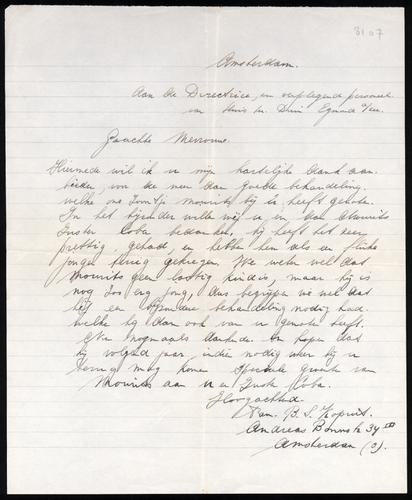 3107
Amsterdam.
Aan de Directrice, en verplegende personeel
van Huis ter Duin Egmond a/zee.
Geachte Mevrouw.
Hiermede wil ik u mijn hartelijke dank aan-
bieden, voor de meer dan goede behandeling
welke ons zoontje Mourits bij u heeft genoten.
In het bijzonder wille wij u en dan
Zuster Loba bedanken, hij heeft het zeer
prettig, gehad, en hebben hem als een flinke
jongen terug gekregen. We weten wel dat
Mourits geen lastig kind is, maar hij is
nog zoo erg jong, dus begrijpen we wel dat
hij een behandeling nodig had.
welke hij dan ook van u genoten heeft.
Nu nogmaals dank en hopen dat
hij volgend jaar, indien nodig weer bij u
terug mag komen speciale groeten van
Mourits aan u en Zuster Loba.
Hoogachtend.
Fam. B. S.
Andreas Bonnstr 34 III
Amsterdam (O).